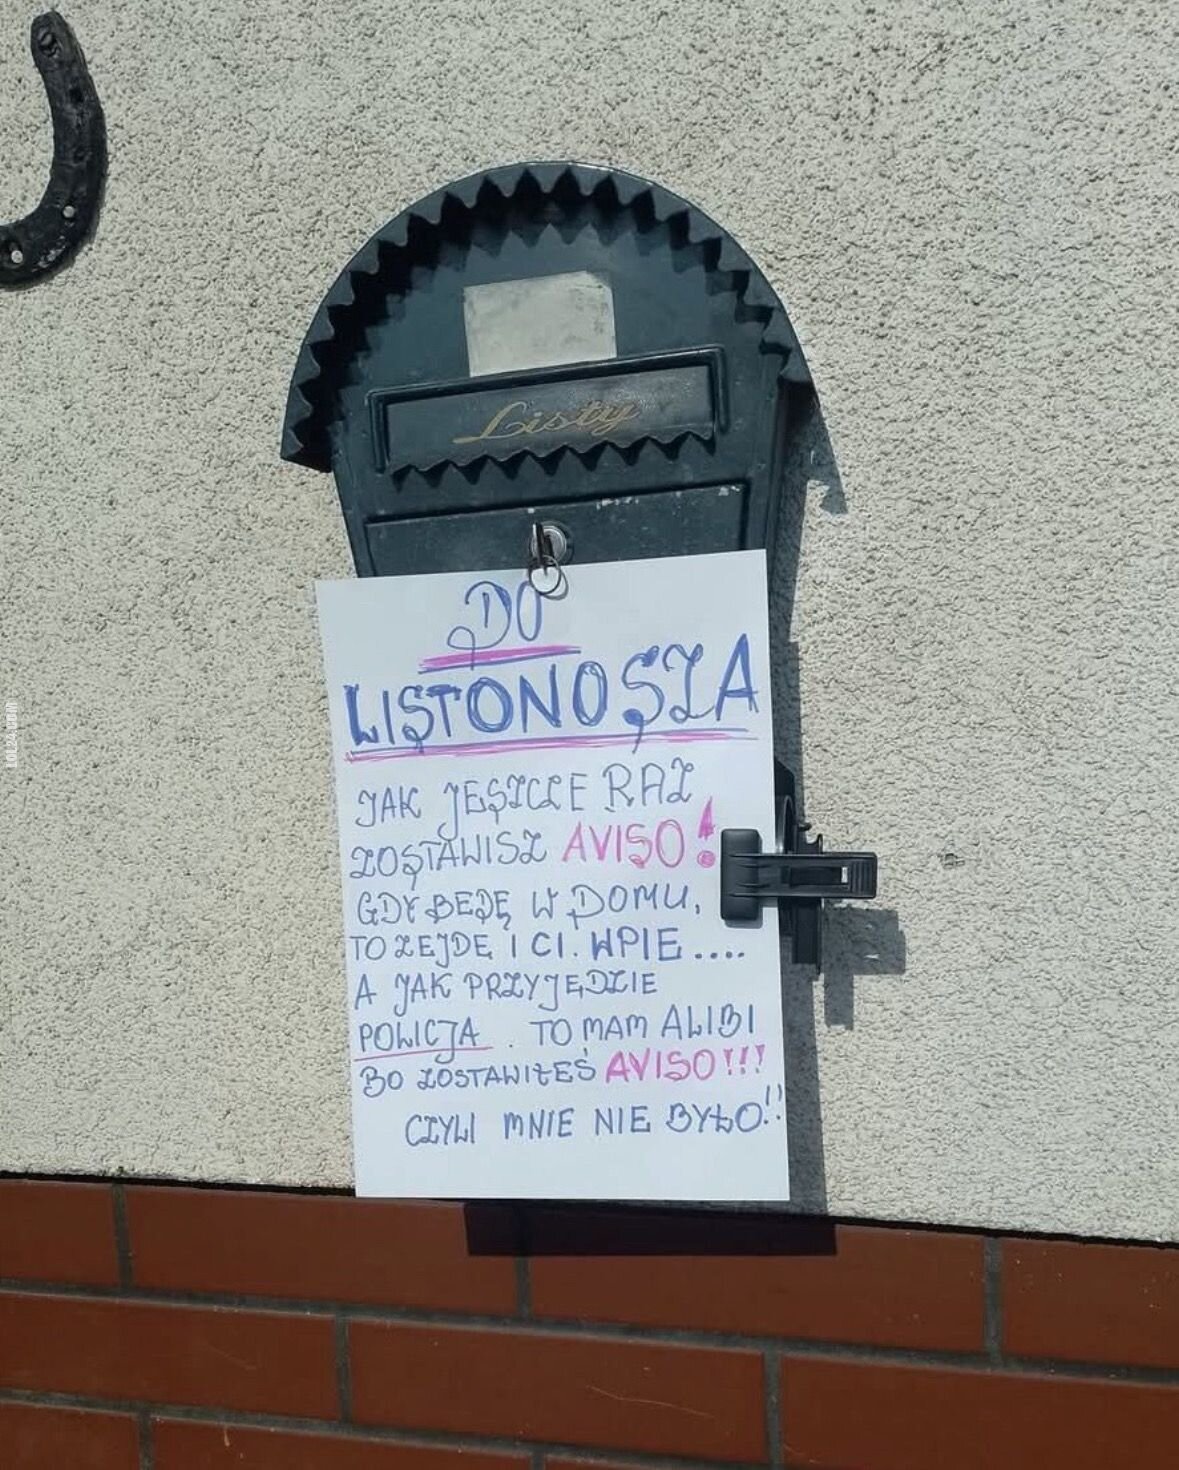 Listy
DO
LISTONOSZA
JAK JESZCZE RAZ
ZOSTAWISZ AVISO!
GDY BEDĘ W DOMU,
TO ZEJDĘ I CI. WPIE....
A JAK PRZYJĘDZIE
POLICJA . TO MAM ALIBI
BO ZOSTAWIŁEŚ AVISO!!!
CZYLI MNIE NIE BYŁO!!
LOL24.COM